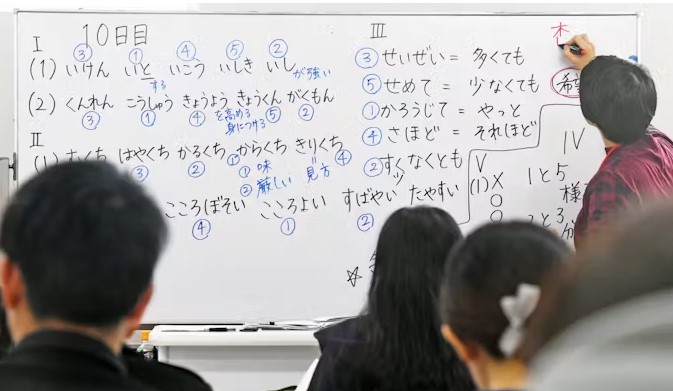 10日目
I
③ ① ④ ⑤ ②
(1) いけん いと いこう いしき いし が強い
する
(2) くんれん こうしゅう きょうよう きょうくん がくもん
③ ① ④ ⑤ ②
を高める
身につける
II
はやくち かるくち からくち きりくち
③ ② ① ④
① 味
② 厳しい 見方
こころぼそい こころよい すばやい たやすい
④ ① ②
III
③ せいぜい = 多くても
⑤ せめて = 少なくても
① かろうじて = やっと
④ さほど = それほど
② すくなくとも
木
希
IV
1と5
様
2と3
V
(1) X
○
☆